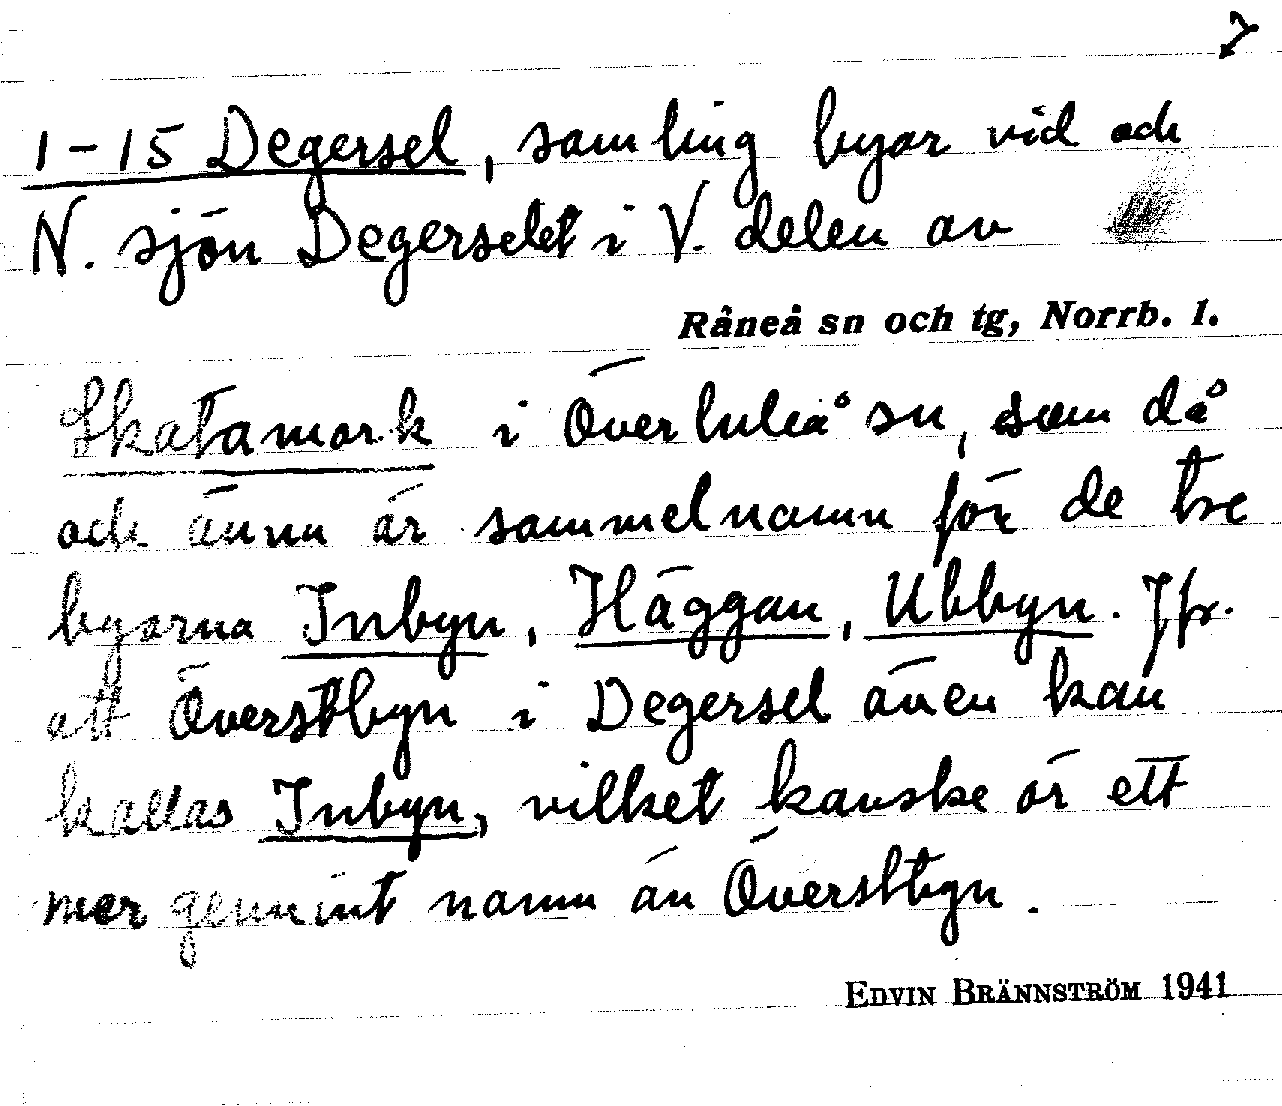 1-15 Degersel, samling byar vid och
N. sjön Degerselet i V. delen av
Råneå sn och tg, Norrb. l.
Skatamark i Överluleå sn, som då
och ännu är sammelnamn för de tre
byarna Inbyn, Häggan, Ubbyn. Jfr.
att Överstbyn i Degersel även kan
kallas Inbyn, vilket kanske är ett
mer genuint namn än Överstbyn.
EDVIN BRÄNNSTRÖM 1941